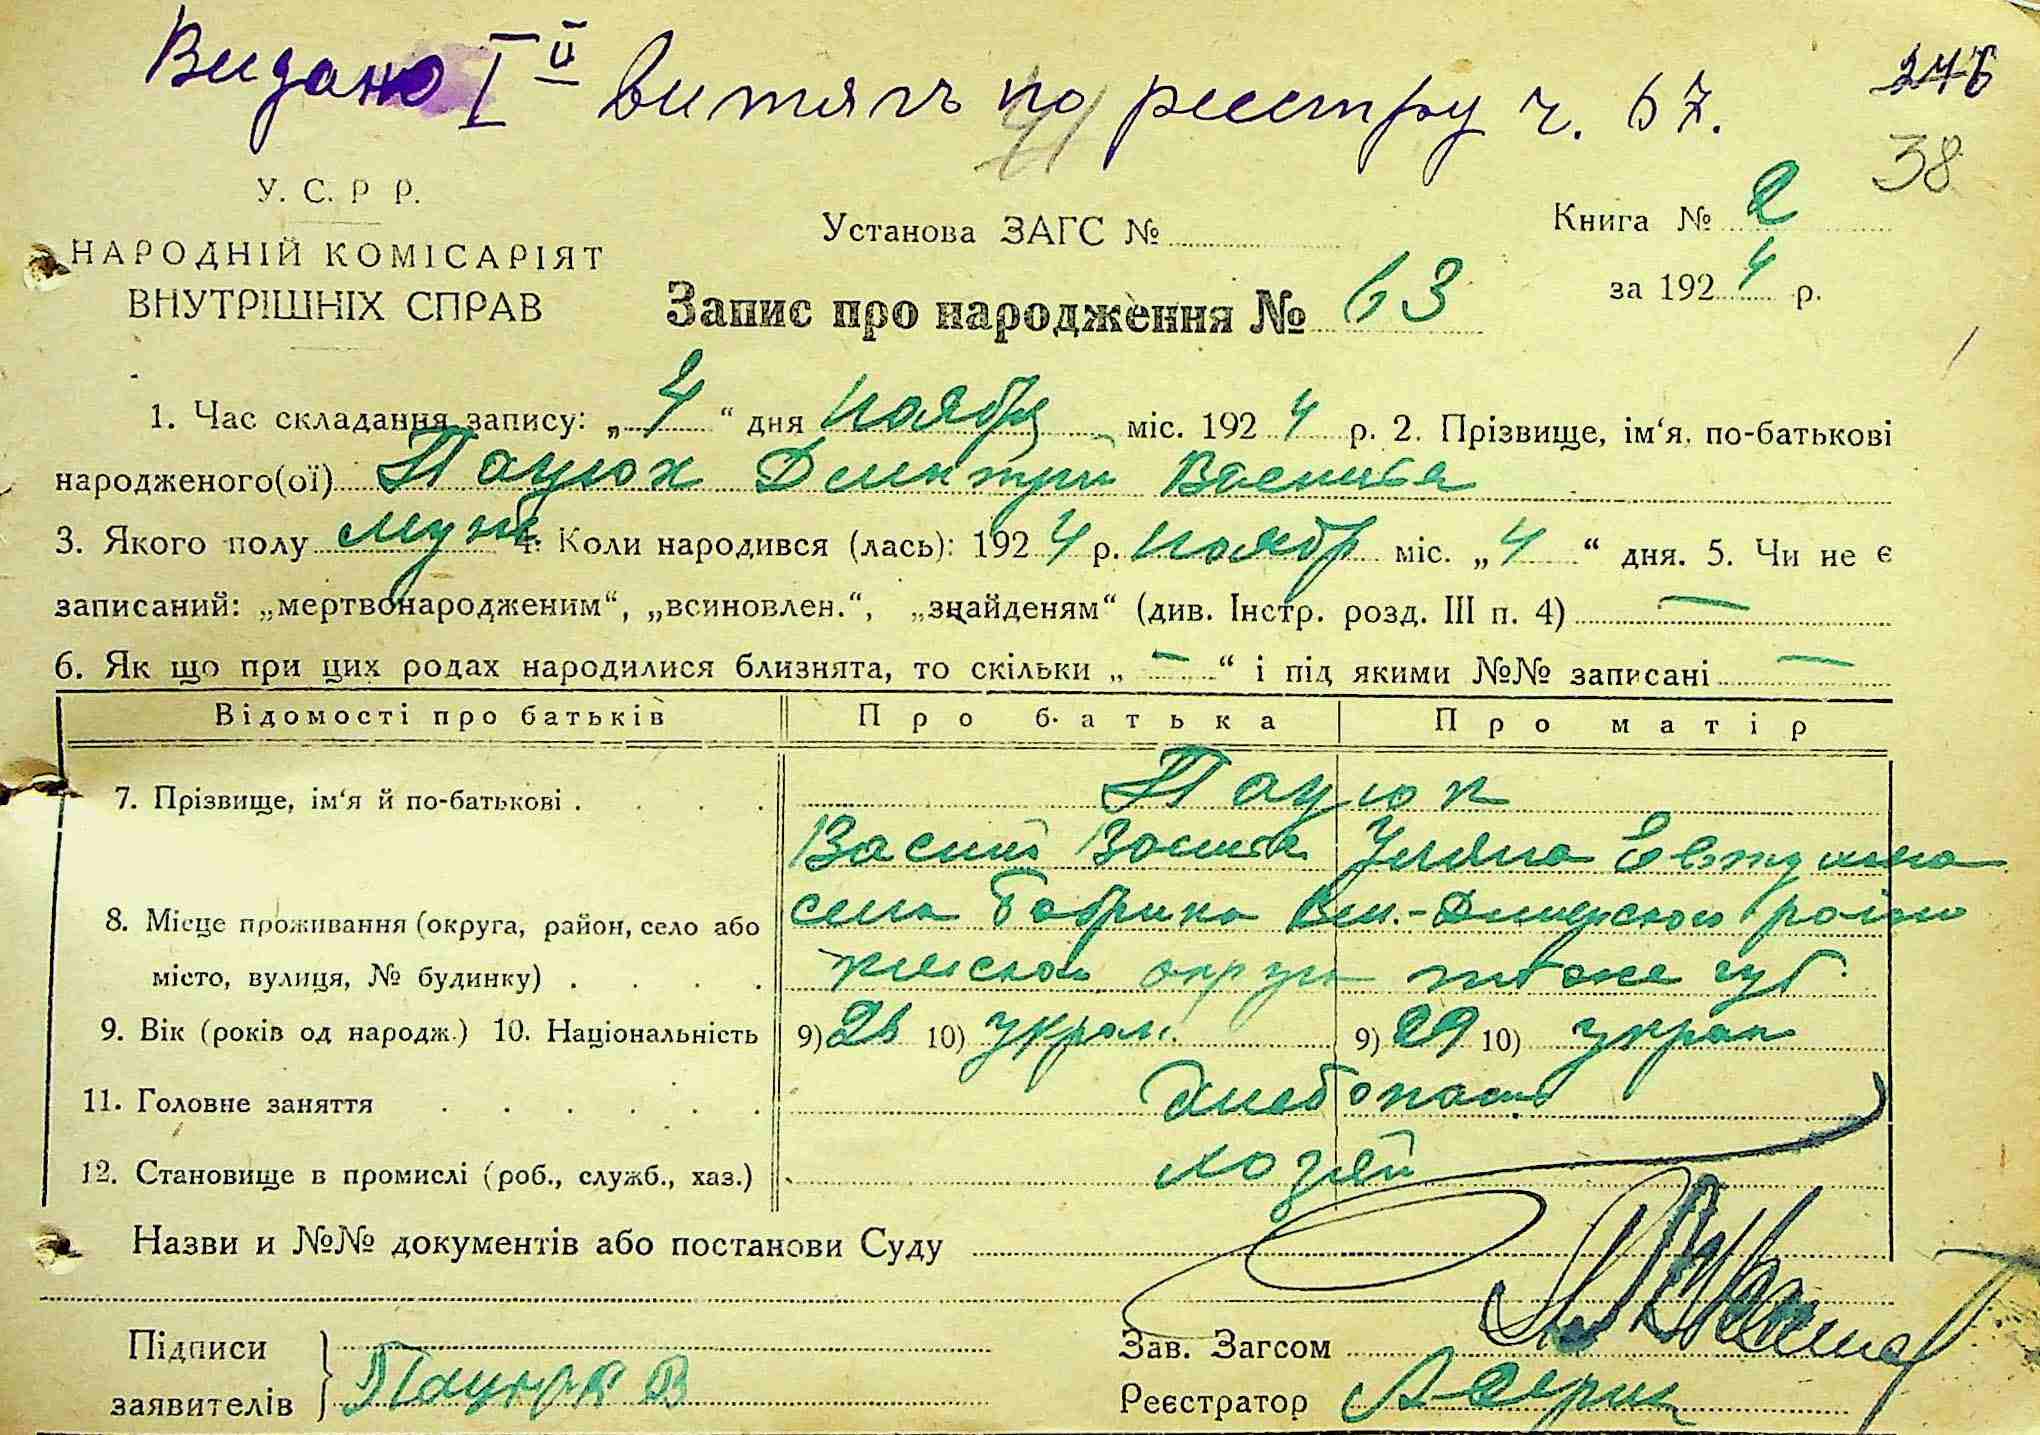 Видано І й витягъ по реєстру ч. 67.
246
41
38
У. С. Р Р.
НАРОДНІЙ КОМІСАРІЯТ
ВНУТРІШНІХ СПРАВ
Установа ЗАГС №
Книга № 2
за 1924 р.
Запис про народження № 63
1. Час складання запису: „4“ дня ноября міс. 1924 р. 2. Прізвище, ім‘я, по-батькові
народженого(ої) Пацюк Дмитрий Васильев
3. Якого полу муж. 4. Коли народився (лась): 1924 р. ноябр міс. „4“ дня. 5. Чи не є
записаний: „мертвонародженим“, „всиновлен.“, „знайденям“ (див. Інстр. розд. III п. 4) —
6. Як що при цих родах народилися близнята, то скільки „—“ і під якими №№ записані —
Відомості про батьків Про батька Про матір
7. Прізвище, ім‘я й по-батькові . . . . Пацюк
Васили Васильев Уляна Евтухиева
8. Місце проживання (округа, район, село або села Бобрика Вел.-Дымерского район
місто, вулиця, № будинку) . . . . Киевской округи тоже губ.
9. Вік (років од народж.) 10. Національність 9) 28 10) украи. 9) 29 10) украи
11. Головне заняття . . . . . . хлебопаш.
12. Становище в промислі (роб., служб., хаз.) хозяин
Назви и №№ документів або постанови Суду
Підписи
заявителів Пацюк В
Зав. Загсом
Реєстратор